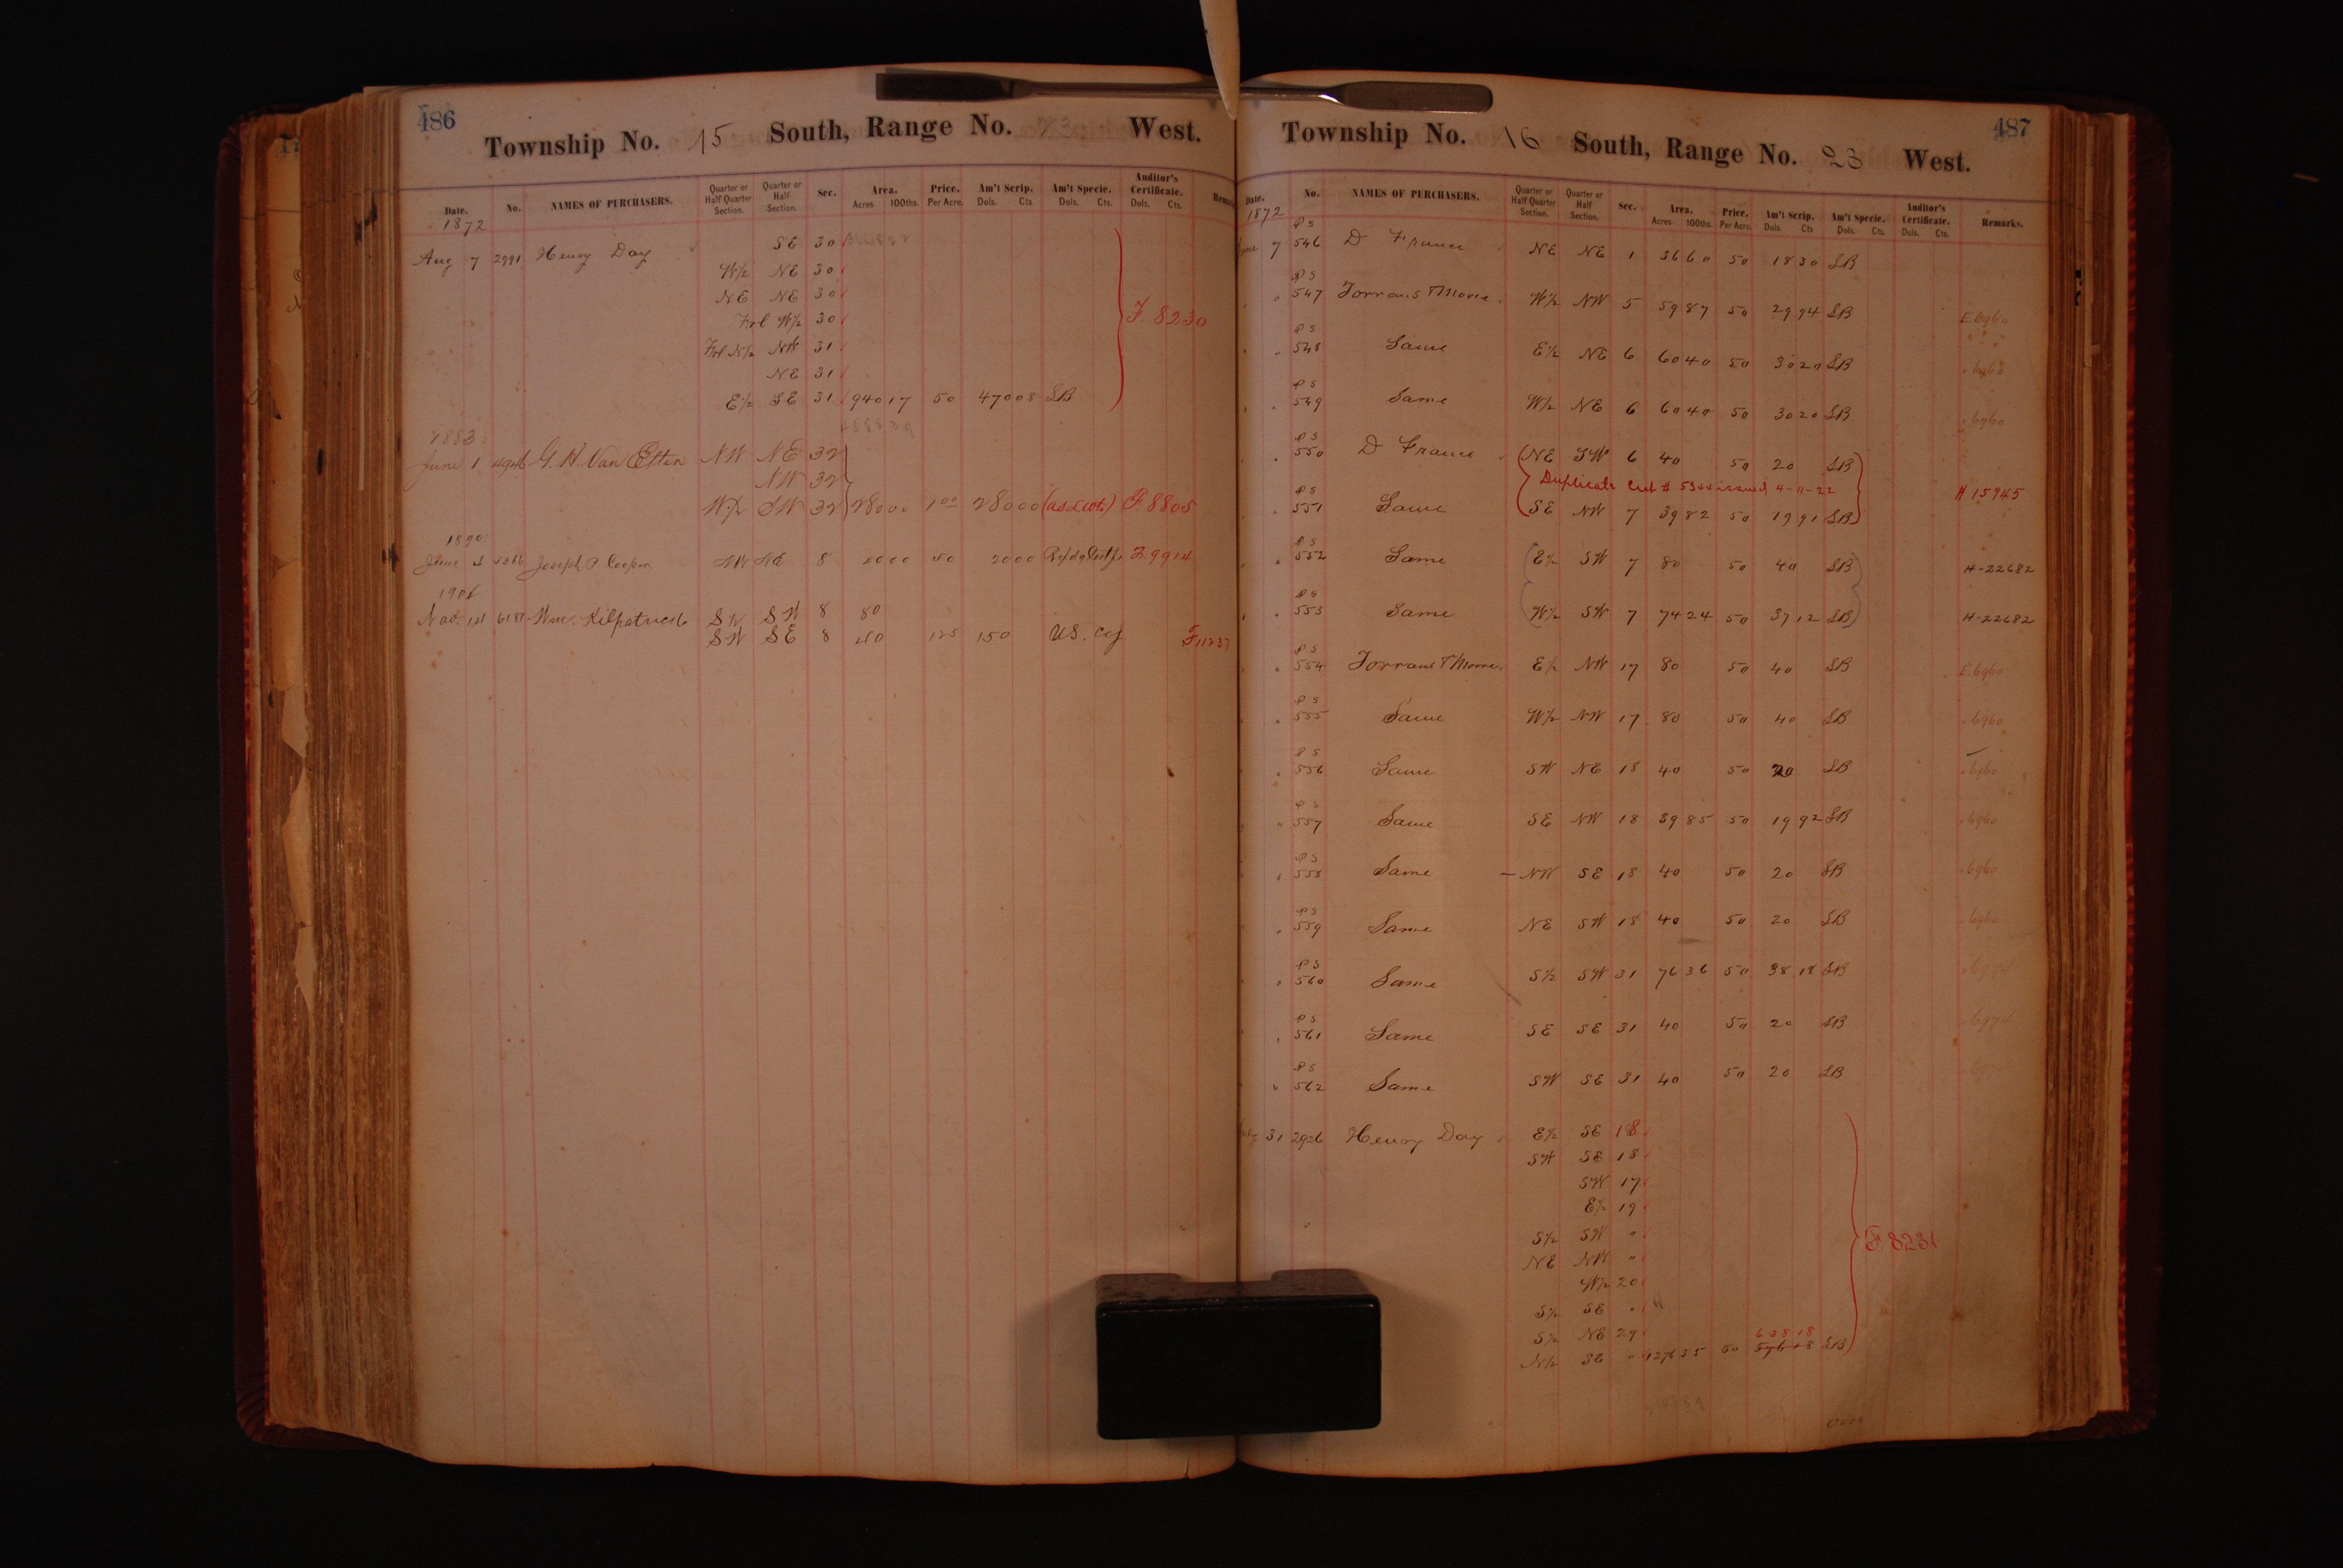 486
Township No. 15 South, Range No. 23 West.
Date. No. NAMES OF PURCHASERS. Quarter or Half Quarter Section. Quarter or Half Section. Sec. Area. Acres 100ths. Price. Per Acre. Am't Scrip. Dols. Cts. Am't Specie. Dols. Cts. Auditor's Certificate. Dols. Cts.
1872
Aug 7 2991 Henry Day SE 30
W½ NE 30
NE NE 30
Frl W½ 30
F. 8230
Frl N½ NW 31
NE 31
E½ SE 31 940 17 50 470 08 LB
1883
June 1 4946 G. H. Van Etten NW NE 32
NW 32
W½ SW 32 280 00 1 00 280 00 F. 8805
1890
June 4 Joseph P Cooper NW NE 8 40 00 50 20 00 F. 9914
1906
Nov. 14 6181 Wm. Kilpatrick S½ SW 8 80
SW SE 8 40 125 150 US. Cy F11237
487
Township No. 16 South, Range No. 23 West.
Date. No. NAMES OF PURCHASERS. Quarter or Half Quarter Section. Quarter or Half Section. Sec. Area. Acres 100ths. Price. Per Acre. Am't Scrip. Dols. Cts Am't Specie. Dols. Cts. Auditor's Certificate. Dols. Cts. Remarks.
1872
June 7 PS 546 D France NE NE 1 36 60 50 18 30 LB
" PS 547 Torrans & Moore W½ NW 5 59 87 50 29 94 LB E.6960
" PS 548 Same E½ NE 6 60 40 50 30 20 LB " 6960
" PS 549 Same W½ NE 6 60 40 50 30 20 LB " 6960
" PS 550 D France NE SW 6 40 50 20 LB
Duplicate Cert # 5344 issued 4-11-22 H 15945
" PS 551 Same SE NW 7 39 82 50 19 91 LB
" PS 552 Same E½ SW 7 80 50 40 LB H-22682
" PS 553 Same W½ SW 7 74 24 50 37 12 LB H-22682
" PS 554 Torrans & Moore E½ NW 17 80 50 40 LB E.6960
" PS 555 Same W½ NW 17 80 50 40 LB " 6960
" PS 556 Same SW NE 18 40 50 20 LB " 6960
" PS 557 Same SE NW 18 39 85 50 19 92 LB " 6960
" PS 558 Same NW SE 18 40 50 20 LB " 6960
" PS 559 Same NE SW 18 40 50 20 LB " 6960
" PS 560 Same S½ SW 31 76 36 50 38 18 LB
" PS 561 Same SE SE 31 40 50 20 LB
" PS 562 Same SW SE 31 40 50 20 LB
July 31 2926 Henry Day E½ SE 18
SW SE 18
SW 17
E½ 19
S½ SW "
F. 8231
NE NW "
W½ 20
S½ SE "
S½ NE 29
638 18
N½ SE " 1276 35 50 576 18 LB
over